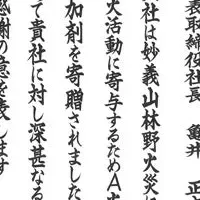 表取締役社長 亀井 正
社は妙義山林野火災に
火活動に寄与するためA火
加剤を寄贈されました
て貴社に対し深甚なる
感謝の意を表します